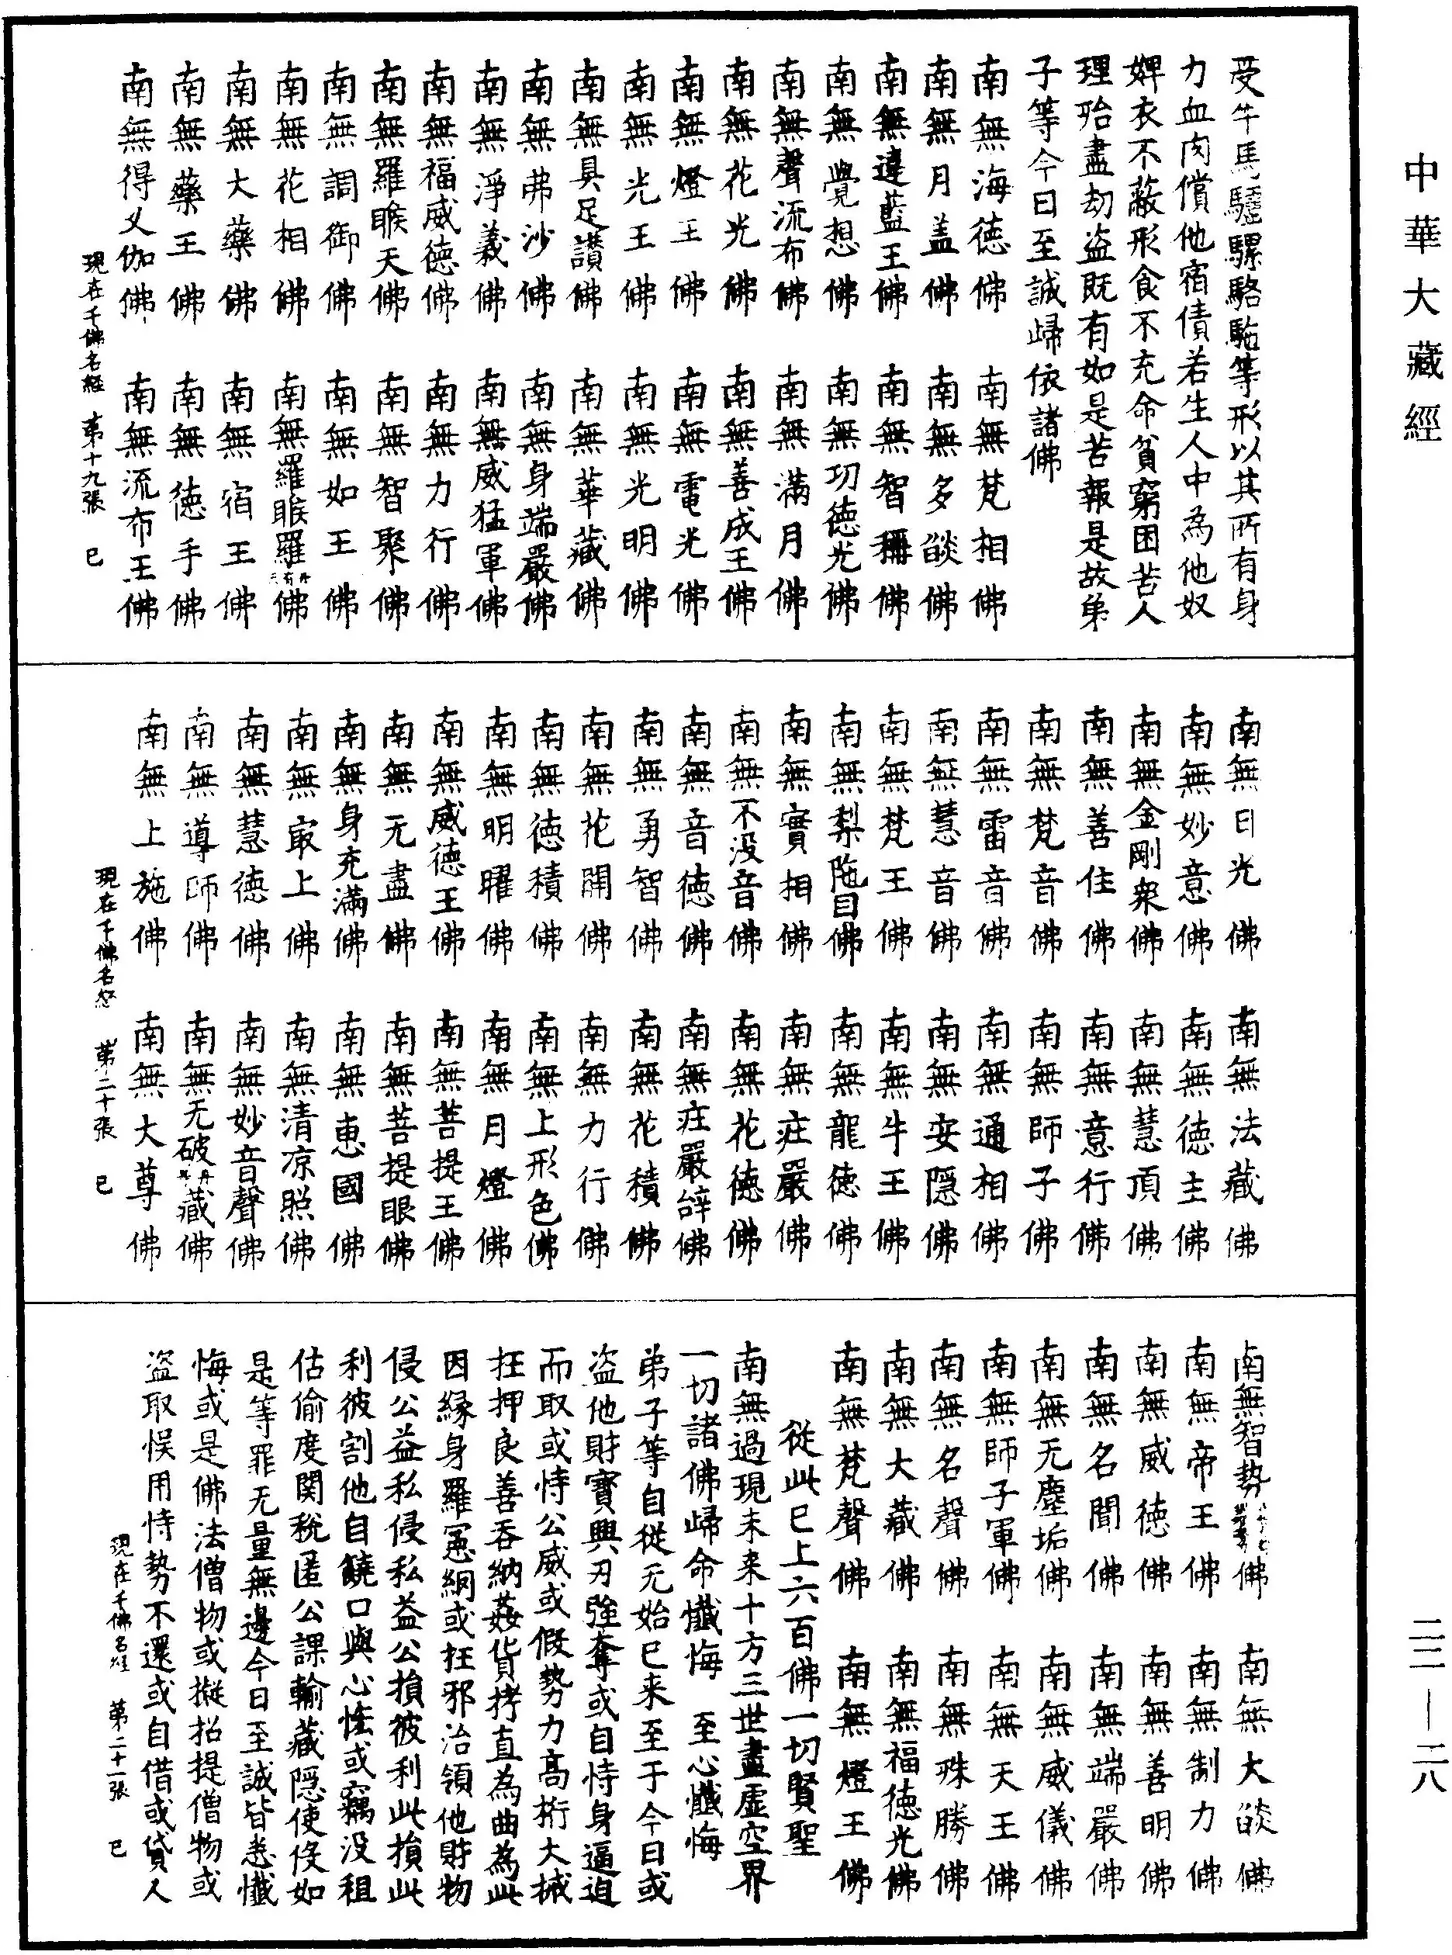 中華大藏經
受牛馬驢騾駱駞等形以其所有身
力血肉償他宿債若生人中為他奴
婢衣不蔽形食不充命貧窮困苦人
理殆盡劫盜既有如是苦報是故弟
子等今日至誠歸依諸佛
南無海德佛 南無梵相佛
南無月盖佛 南無多𦦨佛
南無違藍王佛 南無智稱佛
南無覺想佛 南無功德光佛
南無聲流布佛 南無滿月佛
南無花光佛 南無善成王佛
南無燈王佛 南無電光佛
南無光王佛 南無光明佛
南無具足讚佛 南無華藏佛
南無弗沙佛 南無身端嚴佛
南無淨義佛 南無威猛軍佛
南無福威德佛 南無力行佛
南無羅睺天佛 南無智聚佛
南無調御佛 南無如王佛
南無花相佛 南無羅睺羅佛
南無大藥佛 南無宿王佛
南無藥王佛 南無德手佛
南無得叉伽佛 南無流布王佛
現在千佛名經 第十九張 巳
南無日光佛 南無法藏佛
南無妙意佛 南無德主佛
南無金剛衆佛 南無慧頂佛
南無善住佛 南無意行佛
南無梵音佛 南無師子佛
南無雷音佛 南無通相佛
南無慧音佛 南無安隱佛
南無梵王佛 南無牛王佛
南無梨陁目佛 南無龍德佛
南無實相佛 南無莊嚴佛
南無不没音佛 南無花德佛
南無音德佛 南無莊嚴辝佛
南無勇智佛 南無花積佛
南無花開佛 南無力行佛
南無德積佛 南無上形色佛
南無明曜佛 南無月燈佛
南無威德王佛 南無菩提王佛
南無无盡佛 南無菩提眼佛
南無身充滿佛 南無惠國佛
南無㝡上佛 南無清凉照佛
南無慧德佛 南無妙音聲佛
南無導師佛 南無无破藏佛
南無上施佛 南無大尊佛
現在千佛名經 第二十張 巳
南無智勢佛 南無大𦦨佛
南無帝王佛 南無制力佛
南無威德佛 南無善明佛
南無名聞佛 南無端嚴佛
南無无塵垢佛 南無威儀佛
南無師子軍佛 南無天王佛
南無名聲佛 南無殊勝佛
南無大藏佛 南無福德光佛
南無梵聲佛 南無燈王佛
從此巳上六百佛一切賢聖
南無過現未来十方三世盡虛空界
一切諸佛歸命懺悔 至心懺悔
弟子等自從无始巳来至于今日或
盜他財寶興刃強奪或自恃身逼迫
而取或恃公威或假勢力高桁大械
抂押良善吞納姦貨拷直為曲為此
因緣身羅憲網或抂邪治領他財物
侵公益私侵私益公損彼利此損此
利彼割他自饒口與心恡或竊没租
估偷度関稅匿公課輸藏隱使伇如
是等罪无量無邊今日至誠皆悉懺
悔或是佛法僧物或擬招提僧物或
盜取悮用恃勢不還或自借或貸人
現在千佛名經 第二十一張 巳
二二—二八